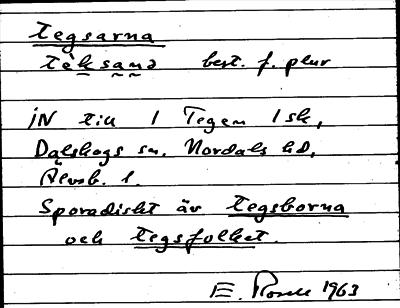 tegsarna
tèksanə best. f. plur
iN till 1 Tegen 1 sk,
Dalskogs sn. Nordals hd,
Älvsb. l.
Sporadiskt är tegsborna
och tegsfolket.
E. Rosell 1963